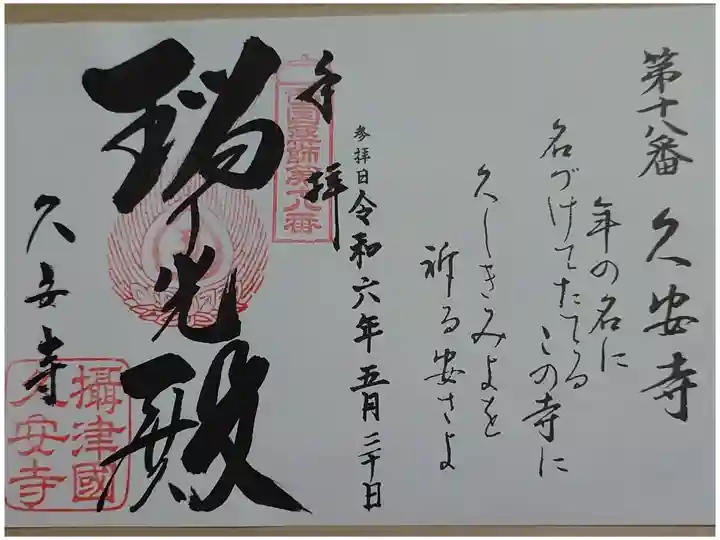 第十八番 久安寺
年の名に
名づけてたてる この寺に
久しきみよを
祈る安さよ
参拝日 令和六年五月二十日
奉拝
西国薬師第十八番
瑠光殿
久安寺
攝津國
久安寺